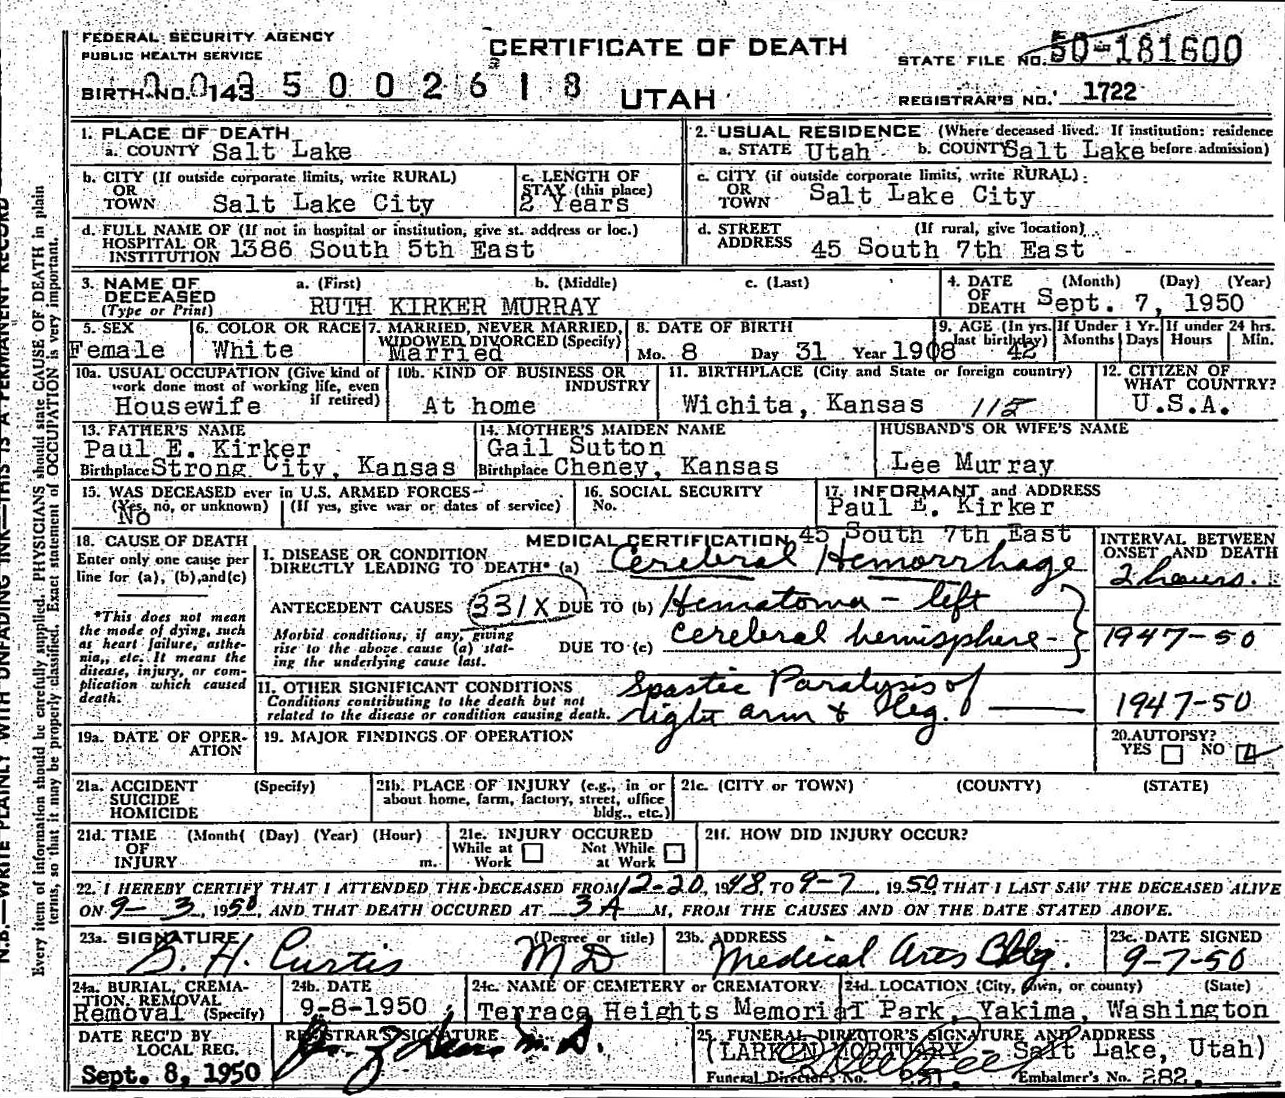 FEDERAL SECURITY AGENCY
PUBLIC HEALTH SERVICE
CERTIFICATE OF DEATH
STATE FILE NO. 50-181600
BIRTH NO. 0143 5002618
UTAH
REGISTRAR'S NO. 1722
1. PLACE OF DEATH
a. COUNTY Salt Lake
2. USUAL RESIDENCE (Where deceased lived. If institution: residence
a. STATE Utah b. COUNTY Salt Lake before admission)
b. CITY (If outside corporate limits, write RURAL)
OR
TOWN Salt Lake City
c. LENGTH OF
STAY (this place)
2 Years
c. CITY (if outside corporate limits, write RURAL)
OR
TOWN Salt Lake City
d. FULL NAME OF (If not in hospital or institution, give st. address or loc.)
HOSPITAL OR
INSTITUTION 1386 South 5th East
d. STREET (If rural, give location)
ADDRESS 45 South 7th East
3. NAME OF a. (First) b. (Middle) c. (Last)
DECEASED
(Type or Print) RUTH KIRKER MURRAY
4. DATE (Month) (Day) (Year)
OF
DEATH Sept. 7, 1950
5. SEX
Female
6. COLOR OR RACE
White
7. MARRIED, NEVER MARRIED,
WIDOWED, DIVORCED (Specify)
Married
8. DATE OF BIRTH
Mo. 8 Day 31 Year 1908
9. AGE (In yrs. last birthday) 42
If Under 1 Yr.
Months Days
If under 24 hrs.
Hours Min.
10a. USUAL OCCUPATION (Give kind of
work done most of working life, even
if retired)
Housewife
10b. KIND OF BUSINESS OR
INDUSTRY
At home
11. BIRTHPLACE (City and State or foreign country)
Wichita, Kansas
12. CITIZEN OF
WHAT COUNTRY?
U.S.A.
13. FATHER'S NAME
Paul E. Kirker
Birthplace Strong City, Kansas
14. MOTHER'S MAIDEN NAME
Gail Sutton
Birthplace Cheney, Kansas
HUSBAND'S OR WIFE'S NAME
Lee Murray
15. WAS DECEASED ever in U.S. ARMED FORCES
(Yes, no, or unknown) (If yes, give war or dates of service)
No
16. SOCIAL SECURITY
No.
17. INFORMANT and ADDRESS
Paul E. Kirker
45 South 7th East
18. CAUSE OF DEATH
Enter only one cause per
line for (a), (b), and (c)
*This does not mean
the mode of dying, such
as heart failure, asthe-
nia, etc. It means the
disease, injury, or com-
plication which caused
death.
MEDICAL CERTIFICATION
INTERVAL BETWEEN
ONSET AND DEATH
I. DISEASE OR CONDITION
DIRECTLY LEADING TO DEATH* (a) Cerebral Hemorrhage
2 hours.
ANTECEDENT CAUSES 331X DUE TO (b) Hematoma - left
Morbid conditions, if any, giving
rise to the above cause (a) stat-
ing the underlying cause last.
DUE TO (c) cerebral hemisphere -
1947-50
11. OTHER SIGNIFICANT CONDITIONS
Conditions contributing to the death but not
related to the disease or condition causing death.
Spastic Paralysis of
right arm & leg.
1947-50
19a. DATE OF OPER-
ATION
19. MAJOR FINDINGS OF OPERATION
20. AUTOPSY?
YES NO
21a. ACCIDENT (Specify)
SUICIDE
HOMICIDE
21b. PLACE OF INJURY (e.g., in or
about home, farm, factory, street, office
bldg., etc.)
21c. (CITY or TOWN) (COUNTY) (STATE)
21d. TIME (Month) (Day) (Year) (Hour)
OF
INJURY m.
21e. INJURY OCCURED
While at Work Not While at Work
21f. HOW DID INJURY OCCUR?
22. I HEREBY CERTIFY THAT I ATTENDED THE DECEASED FROM 12-20, 1948, TO 9-7, 1950, THAT I LAST SAW THE DECEASED ALIVE
ON 9-3, 1950, AND THAT DEATH OCCURED AT 3 A M, FROM THE CAUSES AND ON THE DATE STATED ABOVE.
23a. SIGNATURE (Degree or title)
H. Curtis MD
23b. ADDRESS
Medical Arts Bldg.
23c. DATE SIGNED
9-7-50
24a. BURIAL, CREMA-
TION, REMOVAL
Removal (Specify)
24b. DATE
9-8-1950
24c. NAME OF CEMETERY or CREMATORY
24d. LOCATION (City, town, or county) (State)
Terrace Heights Memorial Park, Yakima, Washington
DATE REC'D BY
LOCAL REG.
Sept. 8, 1950
REGISTRAR'S SIGNATURE
M.D.
25. FUNERAL DIRECTOR'S SIGNATURE AND ADDRESS
(LARKIN MORTUARY - Salt Lake, Utah)
Funeral Director's No. Embalmer's No. 282.
N.B.—WRITE PLAINLY WITH UNFADING INK—THIS IS A PERMANENT RECORD
Every item of information should be carefully supplied. PHYSICIANS should state CAUSE OF DEATH in plain
terms, so that it may be properly classified. Exact statement of OCCUPATION is very important.